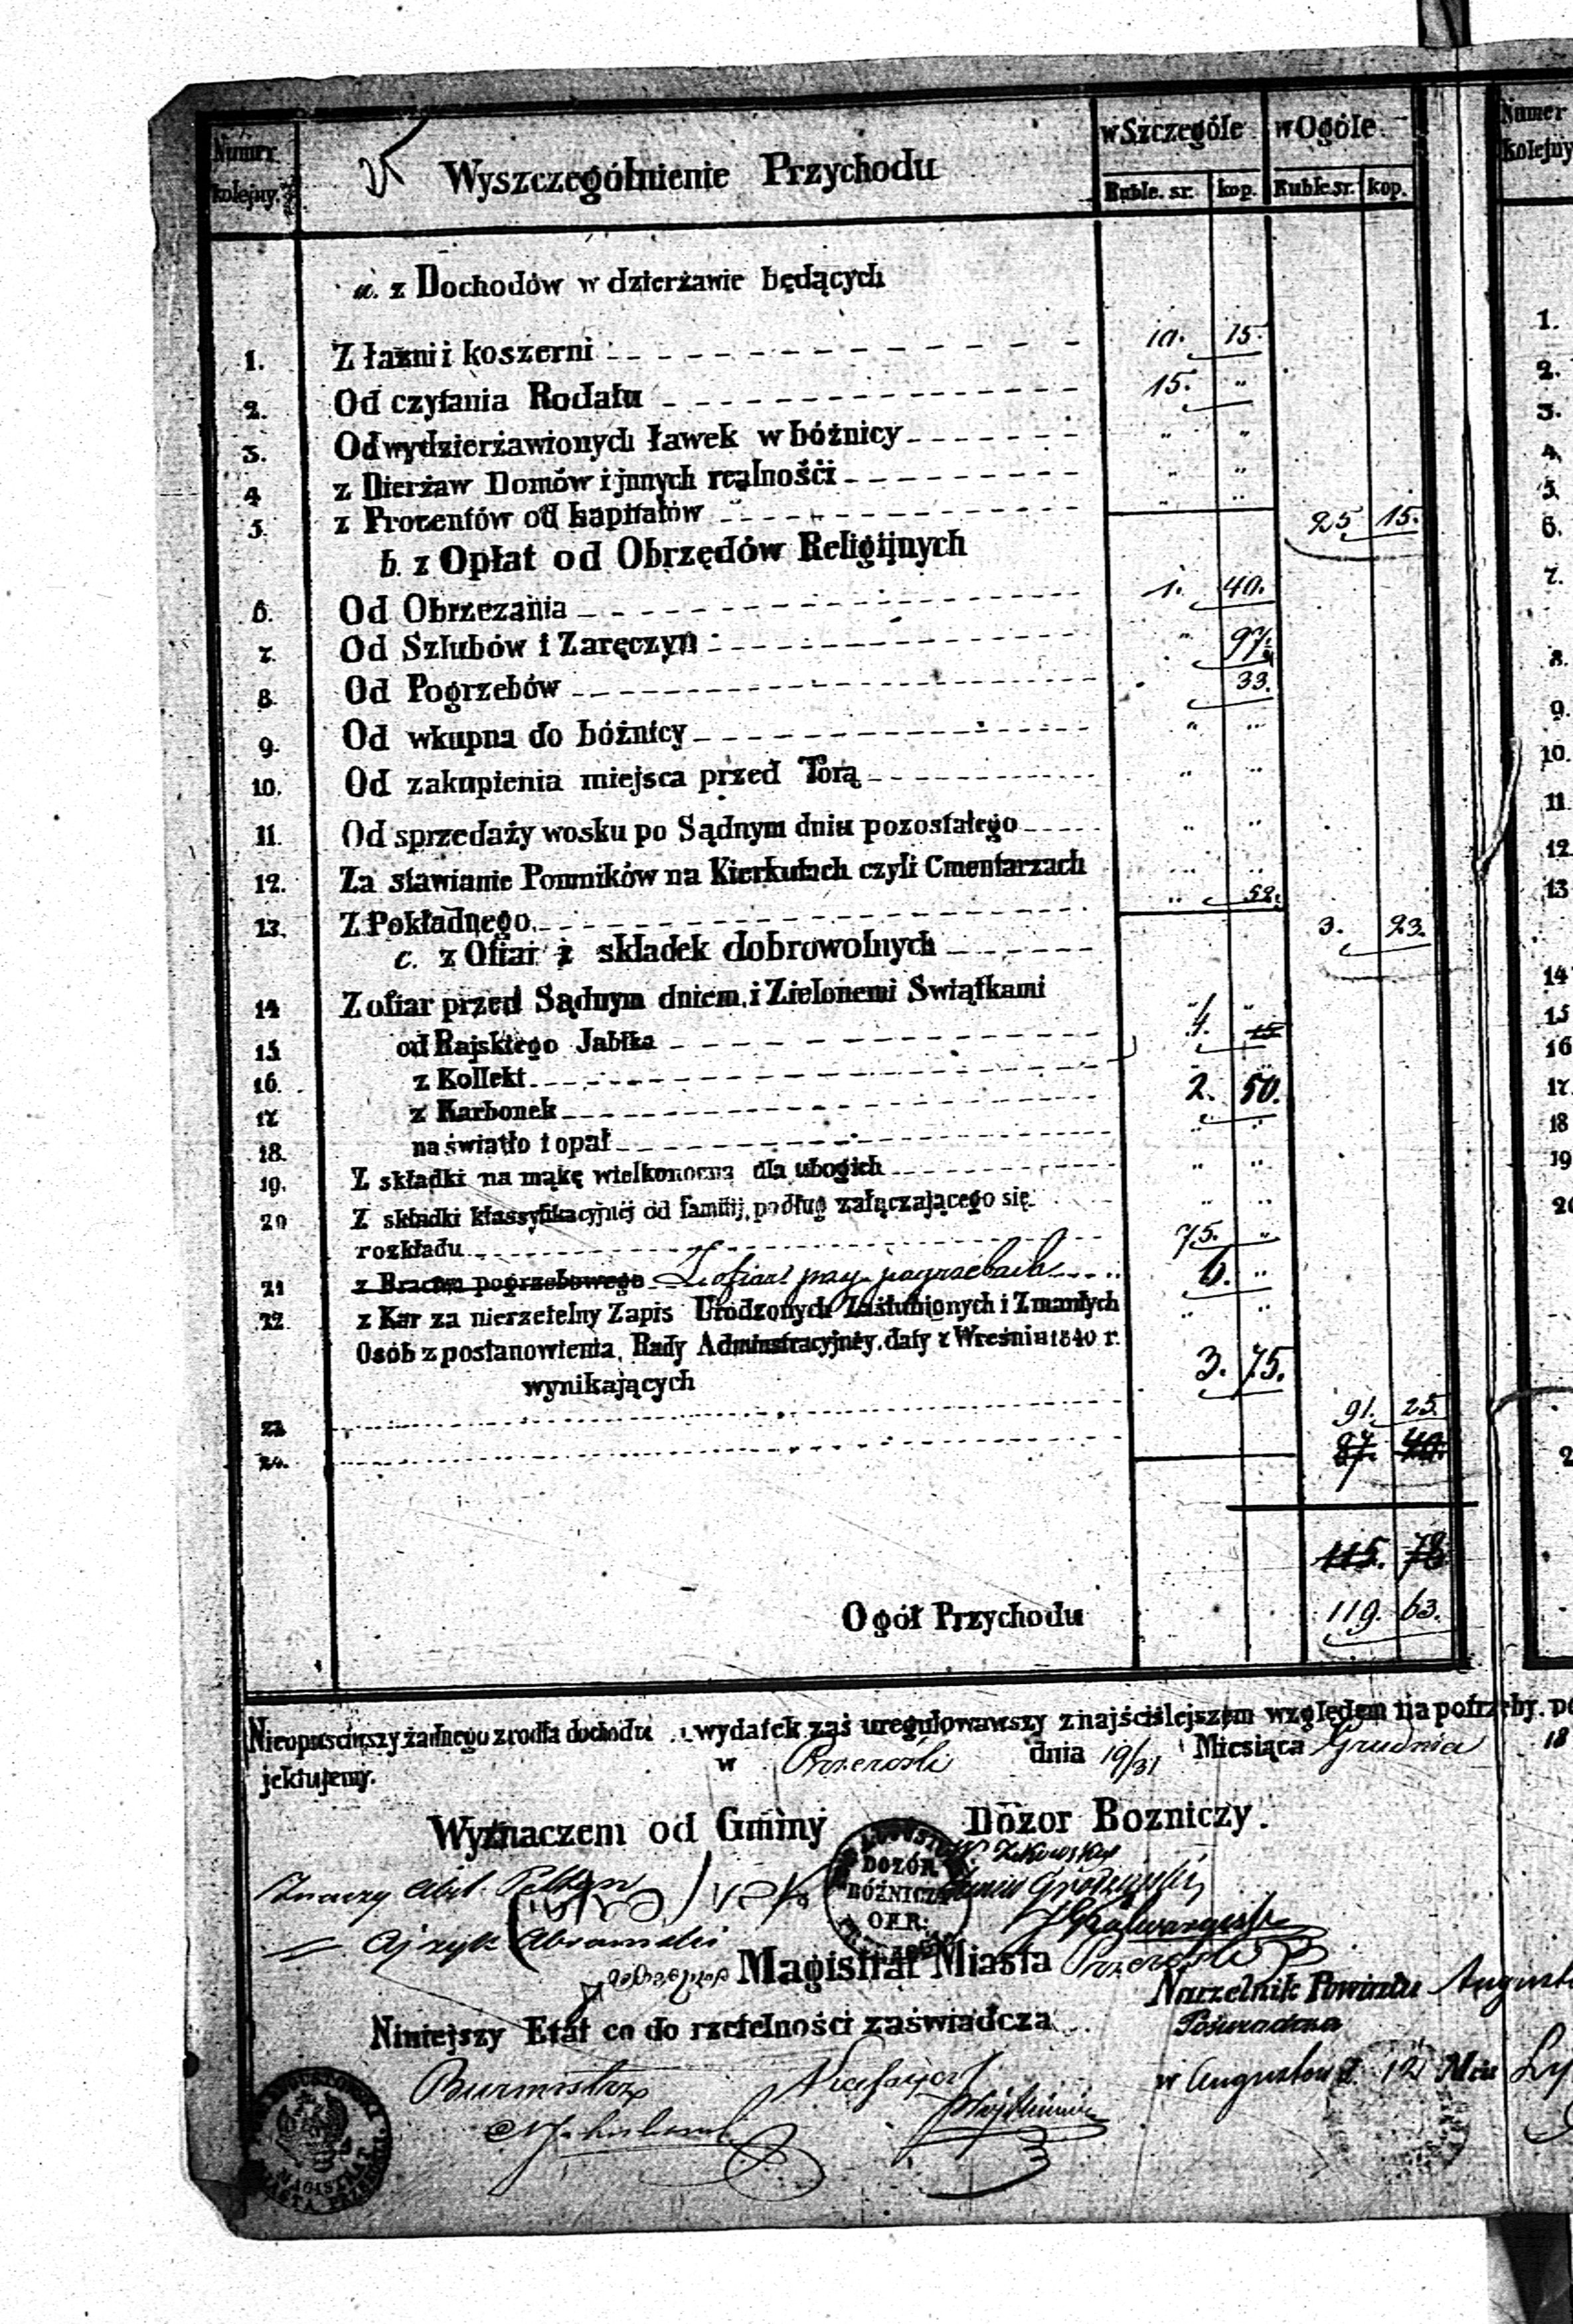 Numer kolejny.
Wyszczególnienie Przychodu
w Szczególe w Ogóle
Ruble. sr. kop. Ruble sr. kop.
a. z Dochodów w dzierżawie będących
1. Z łaźni i koszerni 10. 15.
2. Od czytania Rodału 15. "
3. Od wydzierżawionych ławek w bóżnicy " "
4 z Dierżaw Domów i jnnych realnośći " "
5. z Procentów od kapitałów " " 25 15.
b. z Opłat od Obrzędów Religijnych
6. Od Obrzezania 1. 40.
7. Od Szlubów i Zaręczyn " 97.
8. Od Pogrzebów 33.
9. Od wkupna do bóźnicy " "
10. Od zakupienia miejsca przed Torą " "
11. Od sprzedaży wosku po Sądnym dniu pozostałego " "
12. Za stawianie Pomników na Kierkutach czyli Cmentarzach " "
13. Z Pokładnego " 52. 3. 23.
c. z Ofiar i składek dobrowolnych
14 Z ofiar przed Sądnym dniem, i Zielonemi Swiątkami
15 od Rajskiego Jabłka 4. 15
16. z Kollekt
17 z Karbonek 2. 50.
18. na światło i opał " "
19. Z składki na mąkę wielkonocną dla ubogich " "
20 Z składki klassyfikacyjnéj od familij, podług załączającego się " "
rozkładu 75. "
21 z Bractw pogrzebowego Z ofiar przy pogrzebach 6. "
22 z Kar za nierzetelny Zapis Urodzonych Zaślubionych i Zmarłych " "
Osób z postanowienia Rady Administracyjney daty z Wreśnia 1840 r.
wynikających 3. 75.
23 91. 25.
24. 87. 40.
115. 78
Ogół Przychodu 119. 63.
Nieopuściwszy żadnego zrodła dochodu i wydatek zaś uregulowawszy z najściślejszem względem na potrzeby
jektujemy. w Przerośli dnia 19/31 Miesiąca Grudnia 18
Wyznaczeni od Gminy Dozor Bozniczy.
DOZÓR
BÓŻNICZY
OKR:
Ajzyk Abramski
Magistrat Miasta Przerośli
Naczelnik Powiatu
Niniejszy Etat co do rzetelności zaświadcza
Poświadcza
Burmistrz
w Augustow d. 12 Mca
MAGISTRAT
Numer kolejny
1.
2.
3.
4.
5.
6.
7.
8.
9.
10.
11.
12.
13
14
15
16
17
18
19